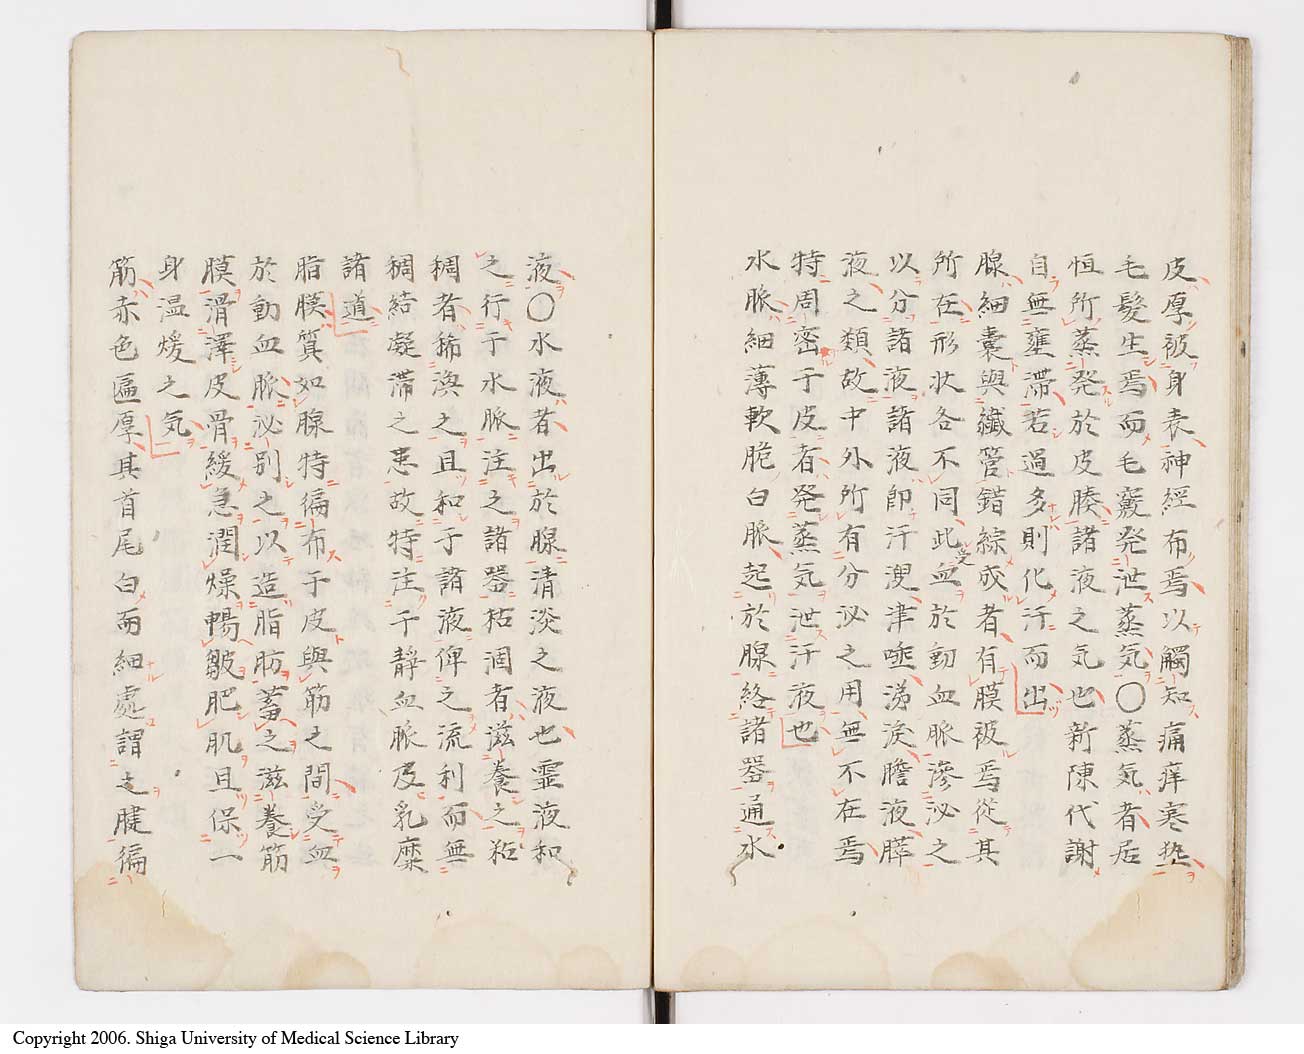 皮厚被身表神經布焉以觸知痛痒寒熱
毛髮生焉而毛竅発泄蒸気〇蒸気者居
恒所蒸発於皮腠諸液之気也新陳代謝
自無壅滞若過多則化汗而出
腺細嚢與纖管錯綜成者有膜被焉從其
所在形状各不同此受血於動血脈滲泌之
以分諸液諸液即汗溲津唾涕涙膽液膵
液之類故中外所有分泌之用無不在焉
特周密于皮者発蒸気泄汗液也
水脈細薄軟脆白脈起於腺絡諸器通水
液〇水液者出於腺清淡之液也霊液和
之行于水脈注之諸器枯涸者滋養之粘
稠者稀渙之且和于諸液俾之流利而無
稠結凝滞之患故特注于靜血脈及乳糜
諸道
脂膜質如腺特徧布于皮與筋之間受血
於動血脈泌別之以造脂肪蓄之滋養筋
膜滑澤皮骨緩急潤燥暢皺肥肌且保一
身温煖之気
筋赤色匾厚其首尾白而細處謂之腱徧
Copyright 2006. Shiga University of Medical Science Library